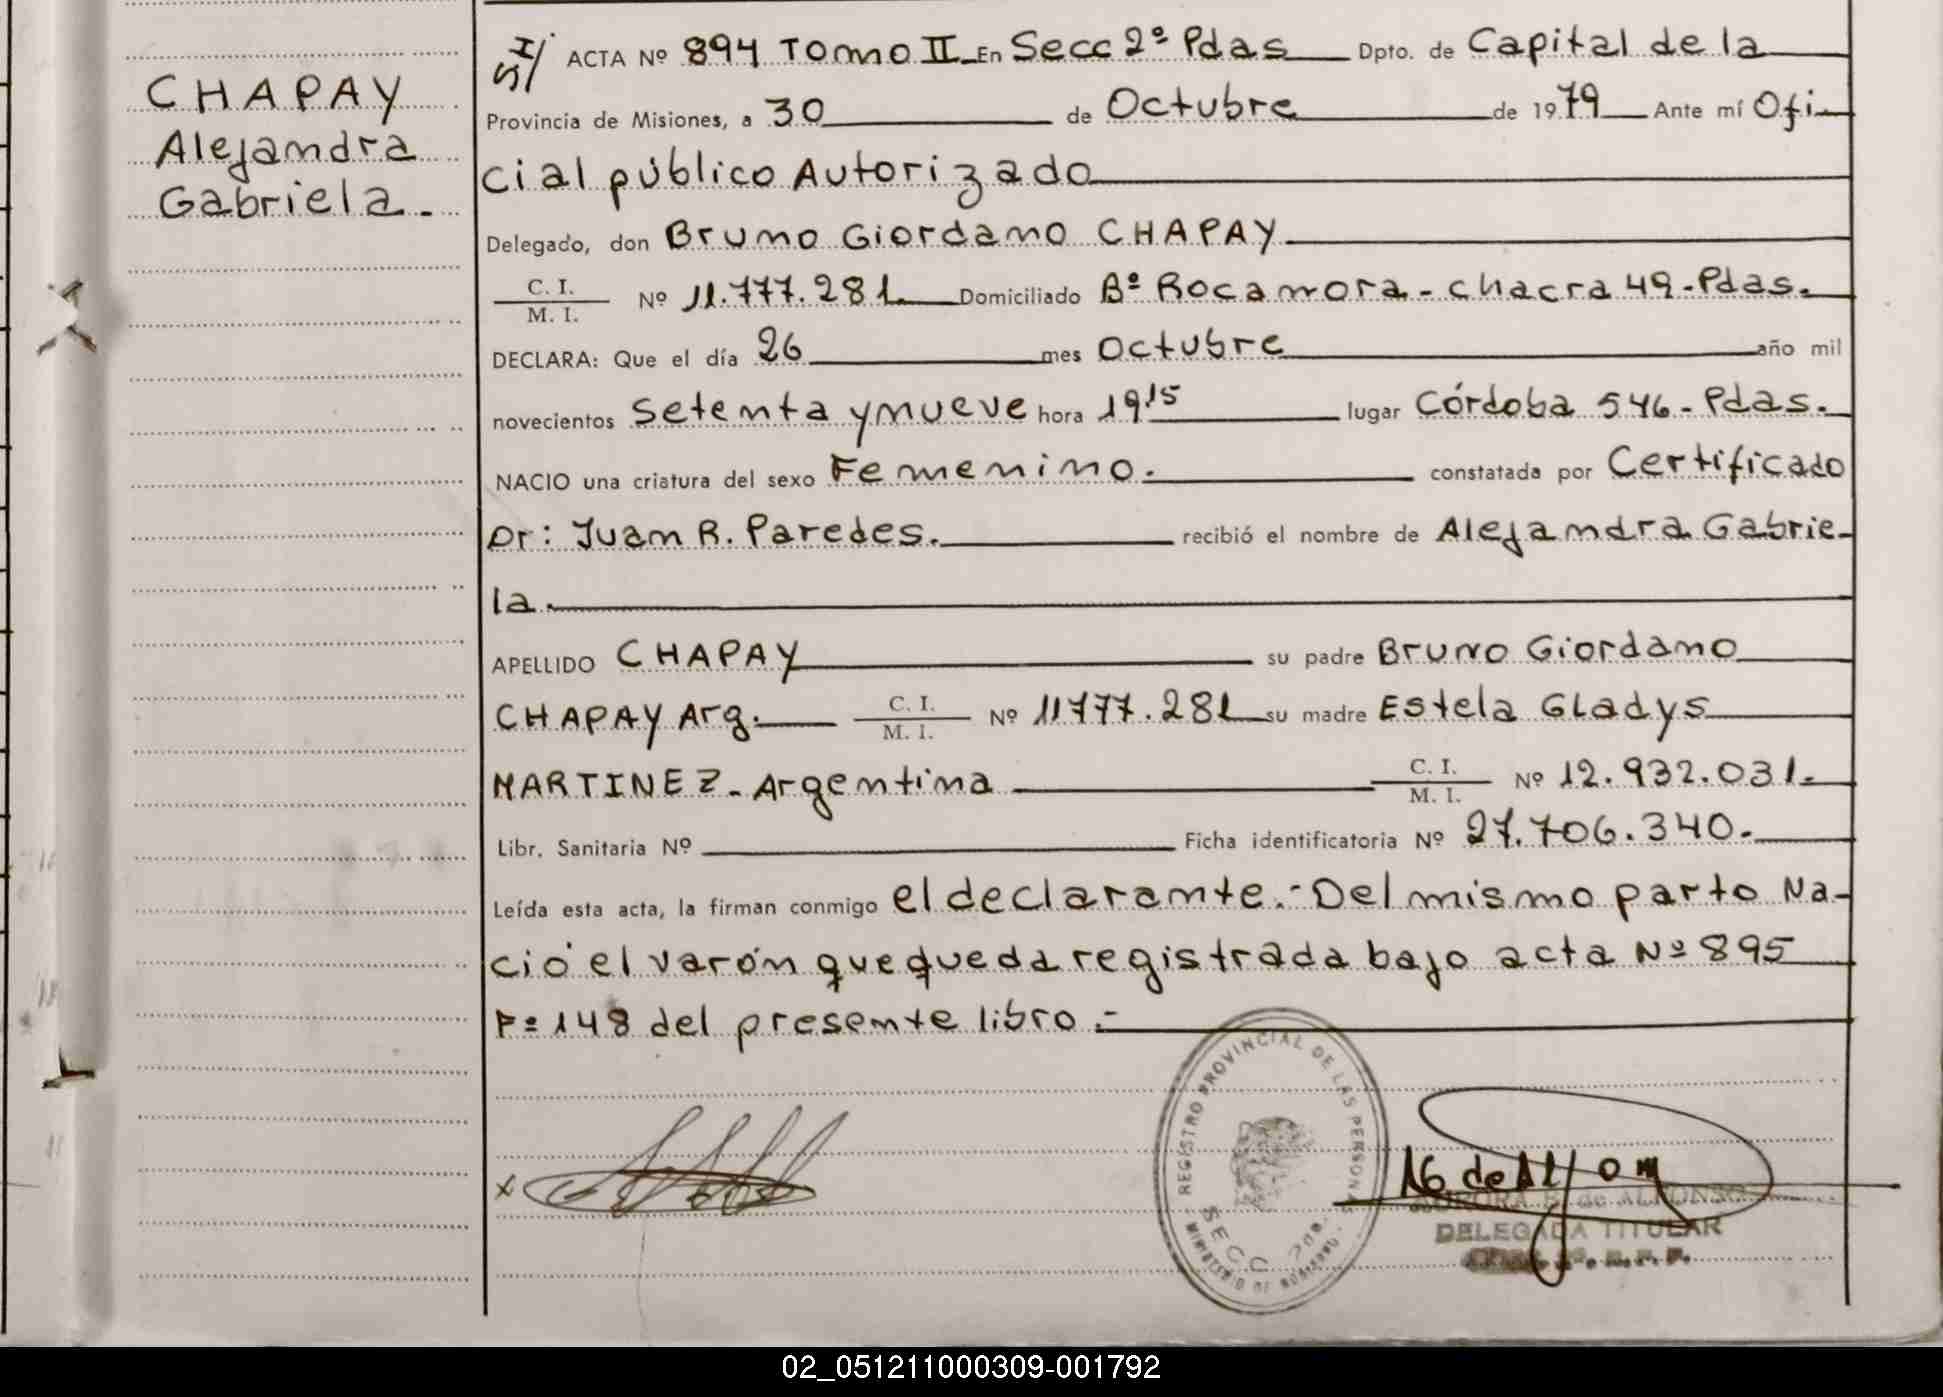 CHAPAY
Alejandra
Gabriela.
S/I ACTA Nº 894 Tomo II En Secc 2º Pdas Dpto. de Capital de la
Provincia de Misiones, a 30 de Octubre de 1979 Ante mí Ofi
cial público Autorizado
Delegado, don Bruno Giordano CHAPAY
C. I.
M. I. Nº 11.777.281. Domiciliado Bº Rocamora - chacra 49 - Pdas.
DECLARA: Que el día 26 mes Octubre año mil
novecientos setenta y nueve hora 19,15 lugar Córdoba 546 - Pdas.
NACIO una criatura del sexo Femenino. constatada por Certificado
Dr: Juan R. Paredes. recibió el nombre de Alejandra Gabrie-
la.
APELLIDO CHAPAY su padre Bruno Giordano
CHAPAY Arg. C. I.
M. I. Nº 11777.281 su madre Estela Gladys
MARTINEZ - Argentina C. I.
M. I. Nº 12.932.031.
Libr. Sanitaria Nº Ficha identificatoria Nº 27.706.340.
Leída esta acta, la firman conmigo el declarante.- Del mismo parto Na-
ció el varón que queda registrada bajo acta Nº 895
Fº 148 del presente libro.-
REGISTRO PROVINCIAL DE LAS PERSONAS
SECC. 2da.
MINISTERIO DE GOBIERNO
AURORA B. de ALFONSO
DELEGADA TITULAR
02_051211000309-001792